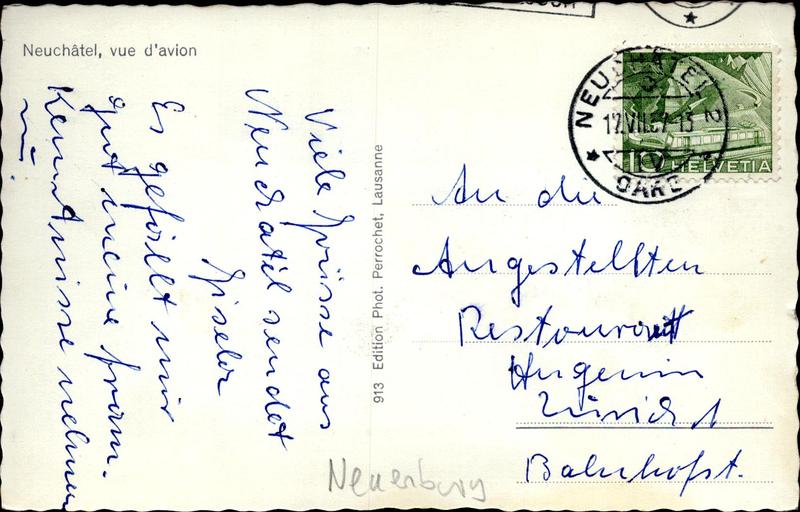 Neuchâtel, vue d'avion
Viele Grüsse aus
Neuchatel sendet
Gisela
Es gefällt mir
gut meine franz.
Kenntnisse nehmen
zu.
913 Edition Phot. Perrochet, Lausanne
NEUCHÂTEL 2
GARE
HELVETIA
10
An die
Angestellten
Restaurant
Huguenin
Zürich 1
Bahnhofst.
Neuenburg